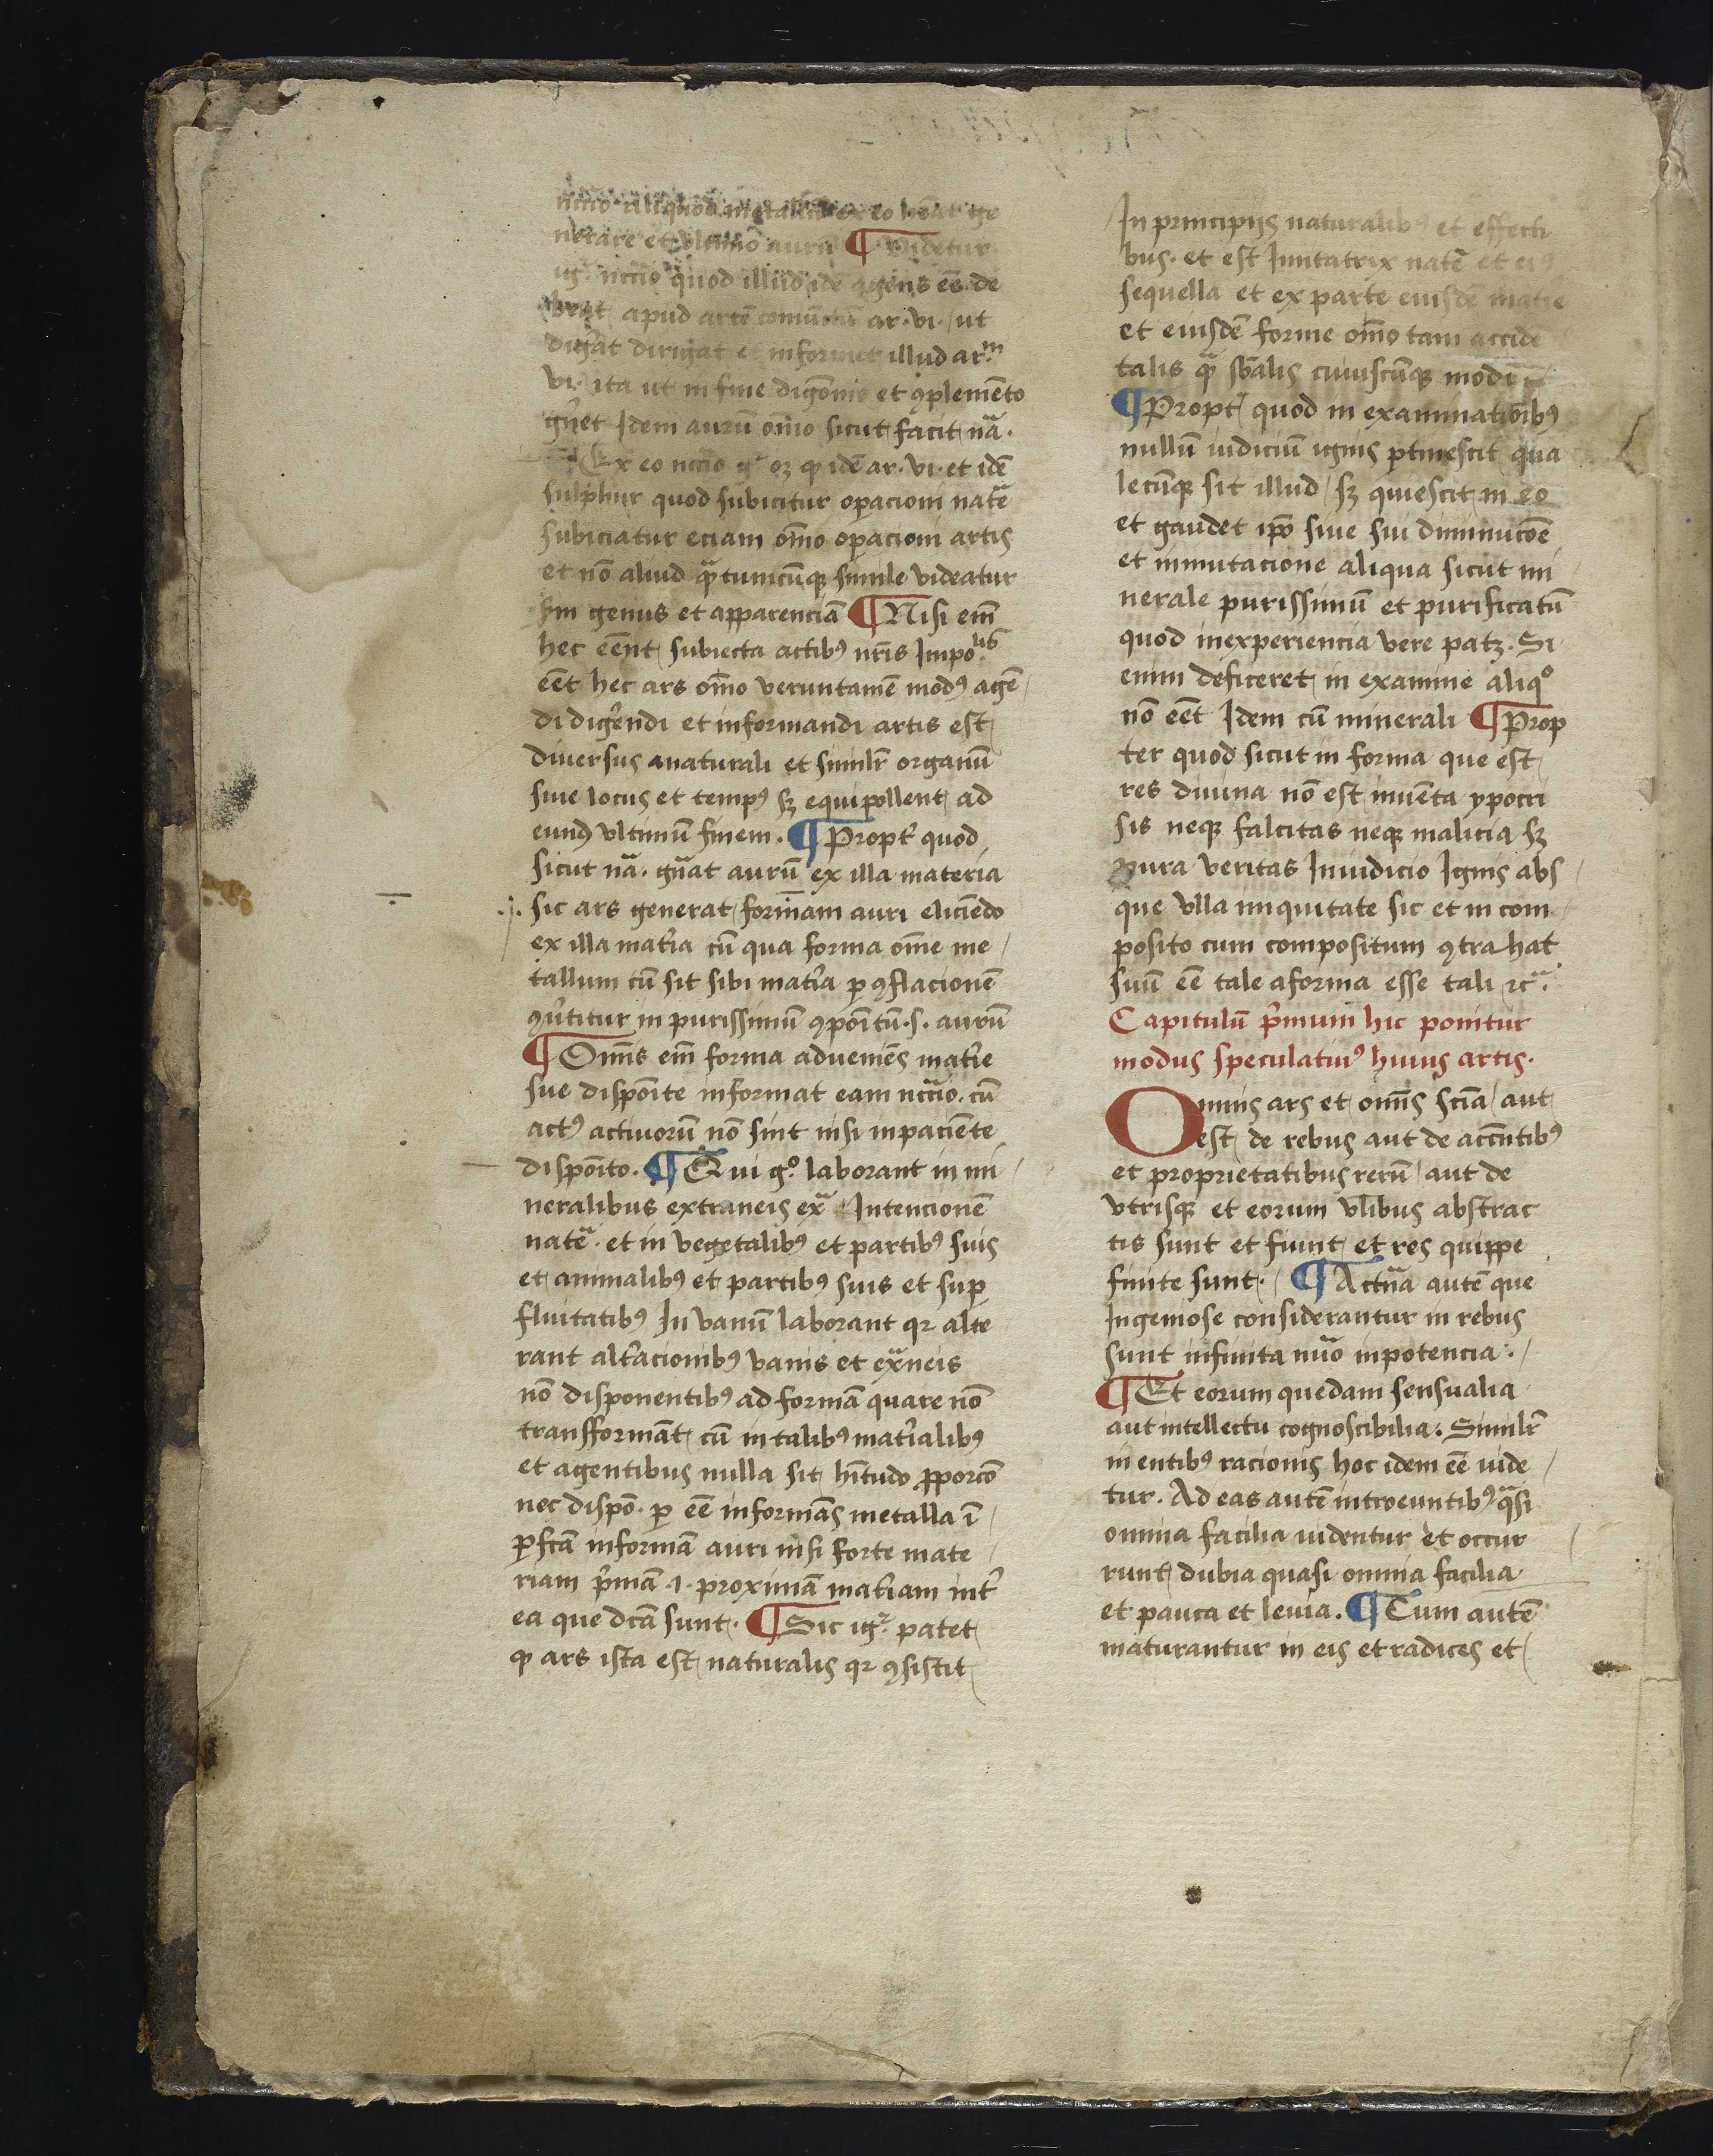 nccīo aliquod metallū ex eo hēat ge
nerare et vltimo aurū ¶ Videtur
igr̄ nccīo quod illud idē agens eē de
apud artē ar. vi. ut
digāt dirigat et informet illud ar.m
vi. ita ut in fine digōnis et ꝯplemēto
gn̄et Idem aurū om̄o sicut facit nā.
¶ Ex eo nccīo gͦ oꝫ ꝙ idē ar. vi. et idē
sulphur quod subicitur operacioni natē
subiciatur eciam om̄o operacioni artis
et nō aliud qͣtumcūqꝫ simile videatur
scdm genus et apparenciā ¶ Nisi em̄
hec eēnt subiecta actibꝰ nr̄is Impo.lia
eēt hec ars om̄o veruntamē modꝰ agē
di digērendi et informandi artis est
diuersus a naturali et similr̄ organū
siue locus et tempꝰ sꝫ equipollent ad
eund vltimū finem. ¶ Propt̄ quod
sicut nā. gn̄at aurū ex illa materia
.j. sic ars generat formam auri eliciēdo
ex illa mat̄ia cū qua forma om̄e me
tallum cū sit sibi mat̄ia ꝑ ꝯflacionē
ꝯu̇titur in purissimū ꝯpoītū .s. aurū
¶ Om̄is em̄ forma adueniēs mat̄ie
sue dispoīte informat eam nccīo. cū
actꝰ actiuorū nō sint nisi in paciēte
dispoīto. ¶ Qui gͦ laborant in mi
neralibus extraneis exͣ Intencionē
natē. et in vegetalibꝰ et partibꝰ suis
et animalibꝰ et partibꝰ suis et suꝑ
fluitatibꝰ In vanū laborant qꝛ alte
rant alt̄acionibꝰ vanis et exͣneis
nō disponentibꝰ ad formā quare nō
transformāt cū in talibꝰ mat̄ialibꝰ
et agentibus nulla sit hītudo ꝓporcō
nec dispō. ꝑ eē informās metalla ī
ꝑfcā in formā auri nisi forte mate
riam p̄mā .i. proximā mat̄iam int̄
ea que dcā sunt. ¶ Sic igr̄ patet
ꝙ ars ista est naturalis qꝛ ꝯsistit
In principijs naturalibꝰ et effecti
bus. et est Imitatrix natē et eiꝰ
sequella et ex parte eiusdē mat̄ie
et eiusdē forme om̄o tam accidē
talis qͣ sb̄alis cuiuscūqꝫ modi
¶ Propt̄ quod in examinationibꝰ
nullū iudiciū ignis ꝑtimescit qua
lecūqꝫ sit illud sꝫ quiescit in eo
et gaudet ip̄o siue sui diminucōe
et inmutacione aliqua sicut mi
nerale purissimū et purificatū
quod in experiencia vere patꝫ. Si
enim deficeret in examine aliqͦ
nō eēt Idem cū minerali ¶ Prop
ter quod sicut in forma que est
res diuina nō est inuēta ypocri
sis neqꝫ falcitas neqꝫ malicia sꝫ
pura veritas In iudicio Ignis abs
que vlla iniquitate sic et in com
posito cum compositum ꝯtrahat
suū eē tale a forma esse tali ⁊cͣ.
Capitulū p̄mum hic ponitur
modus speculatiuꝰ huius artis.
Omnis ars et om̄is sciā aut
est de rebus aut de accn̄tibꝰ
et proprietatibus rerū aut de
vtrisqꝫ et eorum vl̄ibus abstrac
tis sunt et fiunt et res quippe
finite sunt. ¶ Actūa autē que
Ingeniose considerantur in rebus
sunt infinita nūo in potencia.
¶ Et eorum quedam sensualia
aut intellectu cognoscibilia. Similr̄
in entibꝰ racionis hoc idem eē uide
tur. Ad eas autē introeuntibꝰ qͣsi
omnia facilia uidentur et occur
runt dubia quasi omnia facilia
et pauca et leuia. ¶ Cum autē
maturantur in eis et radices et